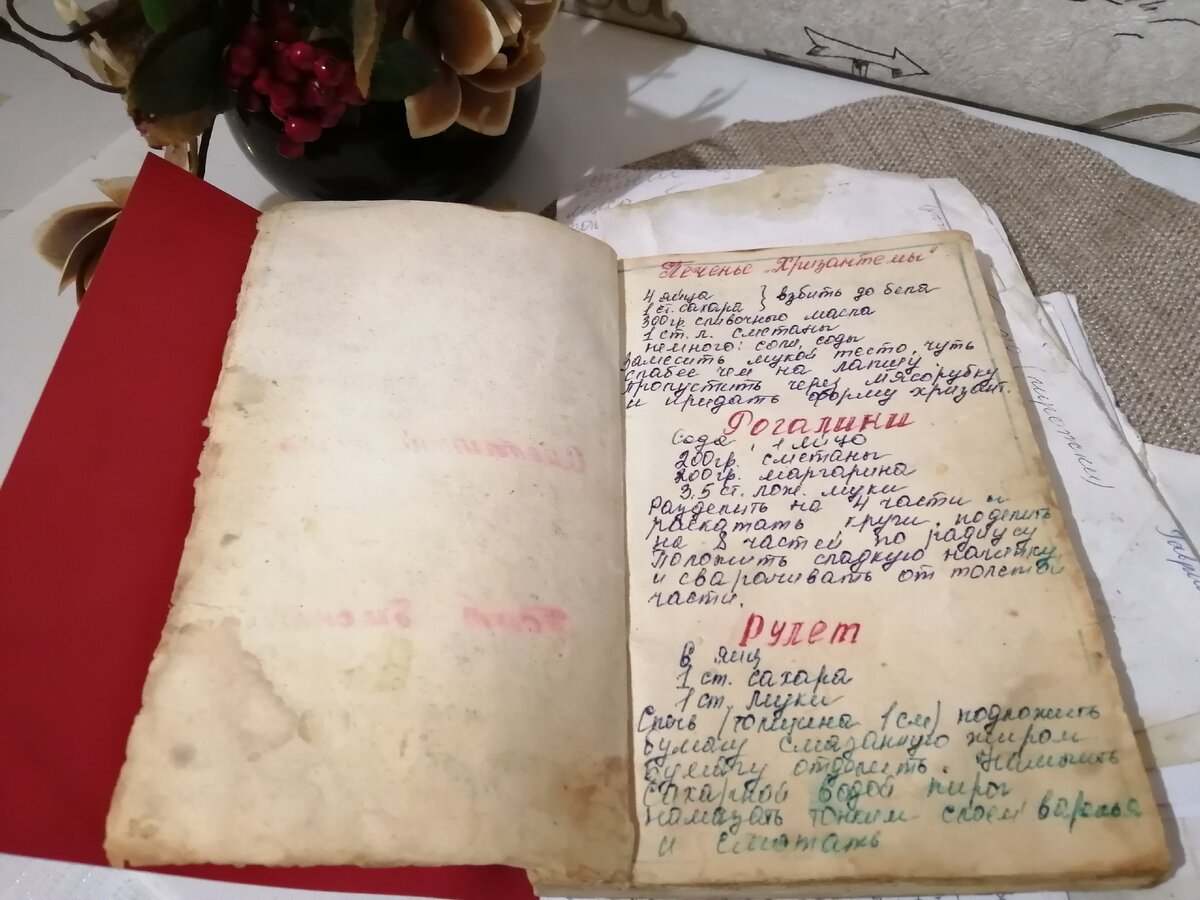 Печенье „Хризантемы"
4 яйца } взбить до бела
1 ст. сахара
300гр. сливочного масла
1 ст. л. сметаны
немного: соли, соды
Замесить мукой тесто, чуть
слабее чем на лапшу.
Пропустить через мясорубку
и придать форму хризант.
Рогалики
Сода, 1 яйцо
200гр. сметаны
200гр. маргарина
3,5 ст. лож. муки
Разделить на 4 части и
раскатать круги, поделить
на 8 частей по радиусу
Положить сладкую начинку
и сварачивать от толстой
части.
Рулет
6 яиц
1 ст. сахара
1 ст. муки
Спечь (толщина 1 см) подложить
бумагу смазанную жиром
бумагу отделить.
сахарной водой пирог
намазать тонким слоем варенья
и смотать
(пирожки)